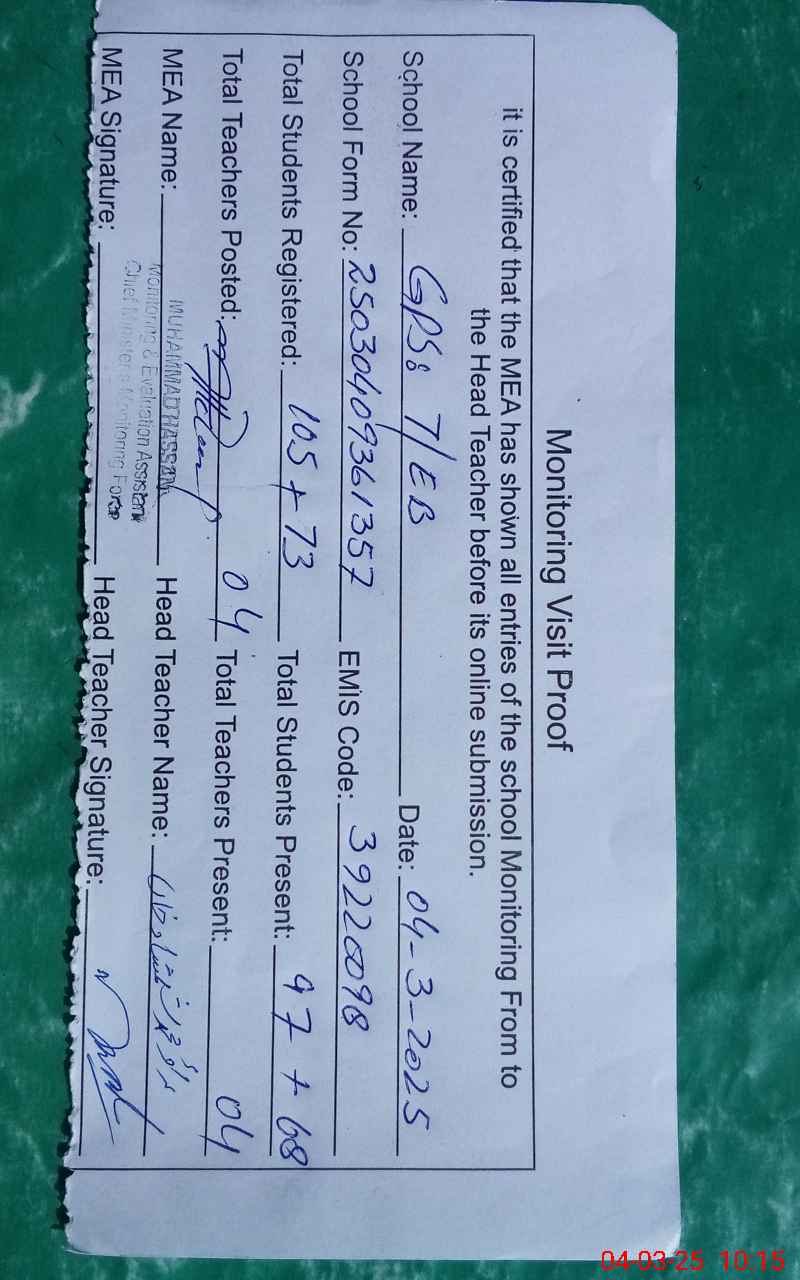 Monitoring Visit Proof
it is certified that the MEA has shown all entries of the school Monitoring From to
the Head Teacher before its online submission.
School Name: GPS: 7/EB Date: 04-3-2025
School Form No: 25030409361357 EMIS Code: 39220098
Total Students Registered: 105 + 73 Total Students Present: 97 + 68
Total Teachers Posted: 04 Total Teachers Present: 04
MEA Name: MUHAMMAD HASSAN Head Teacher Name:
Monitoring & Evaluation Assistant
Chief Minister's Monitoring Force
MEA Signature: Head Teacher Signature:
04-03-25 10:15